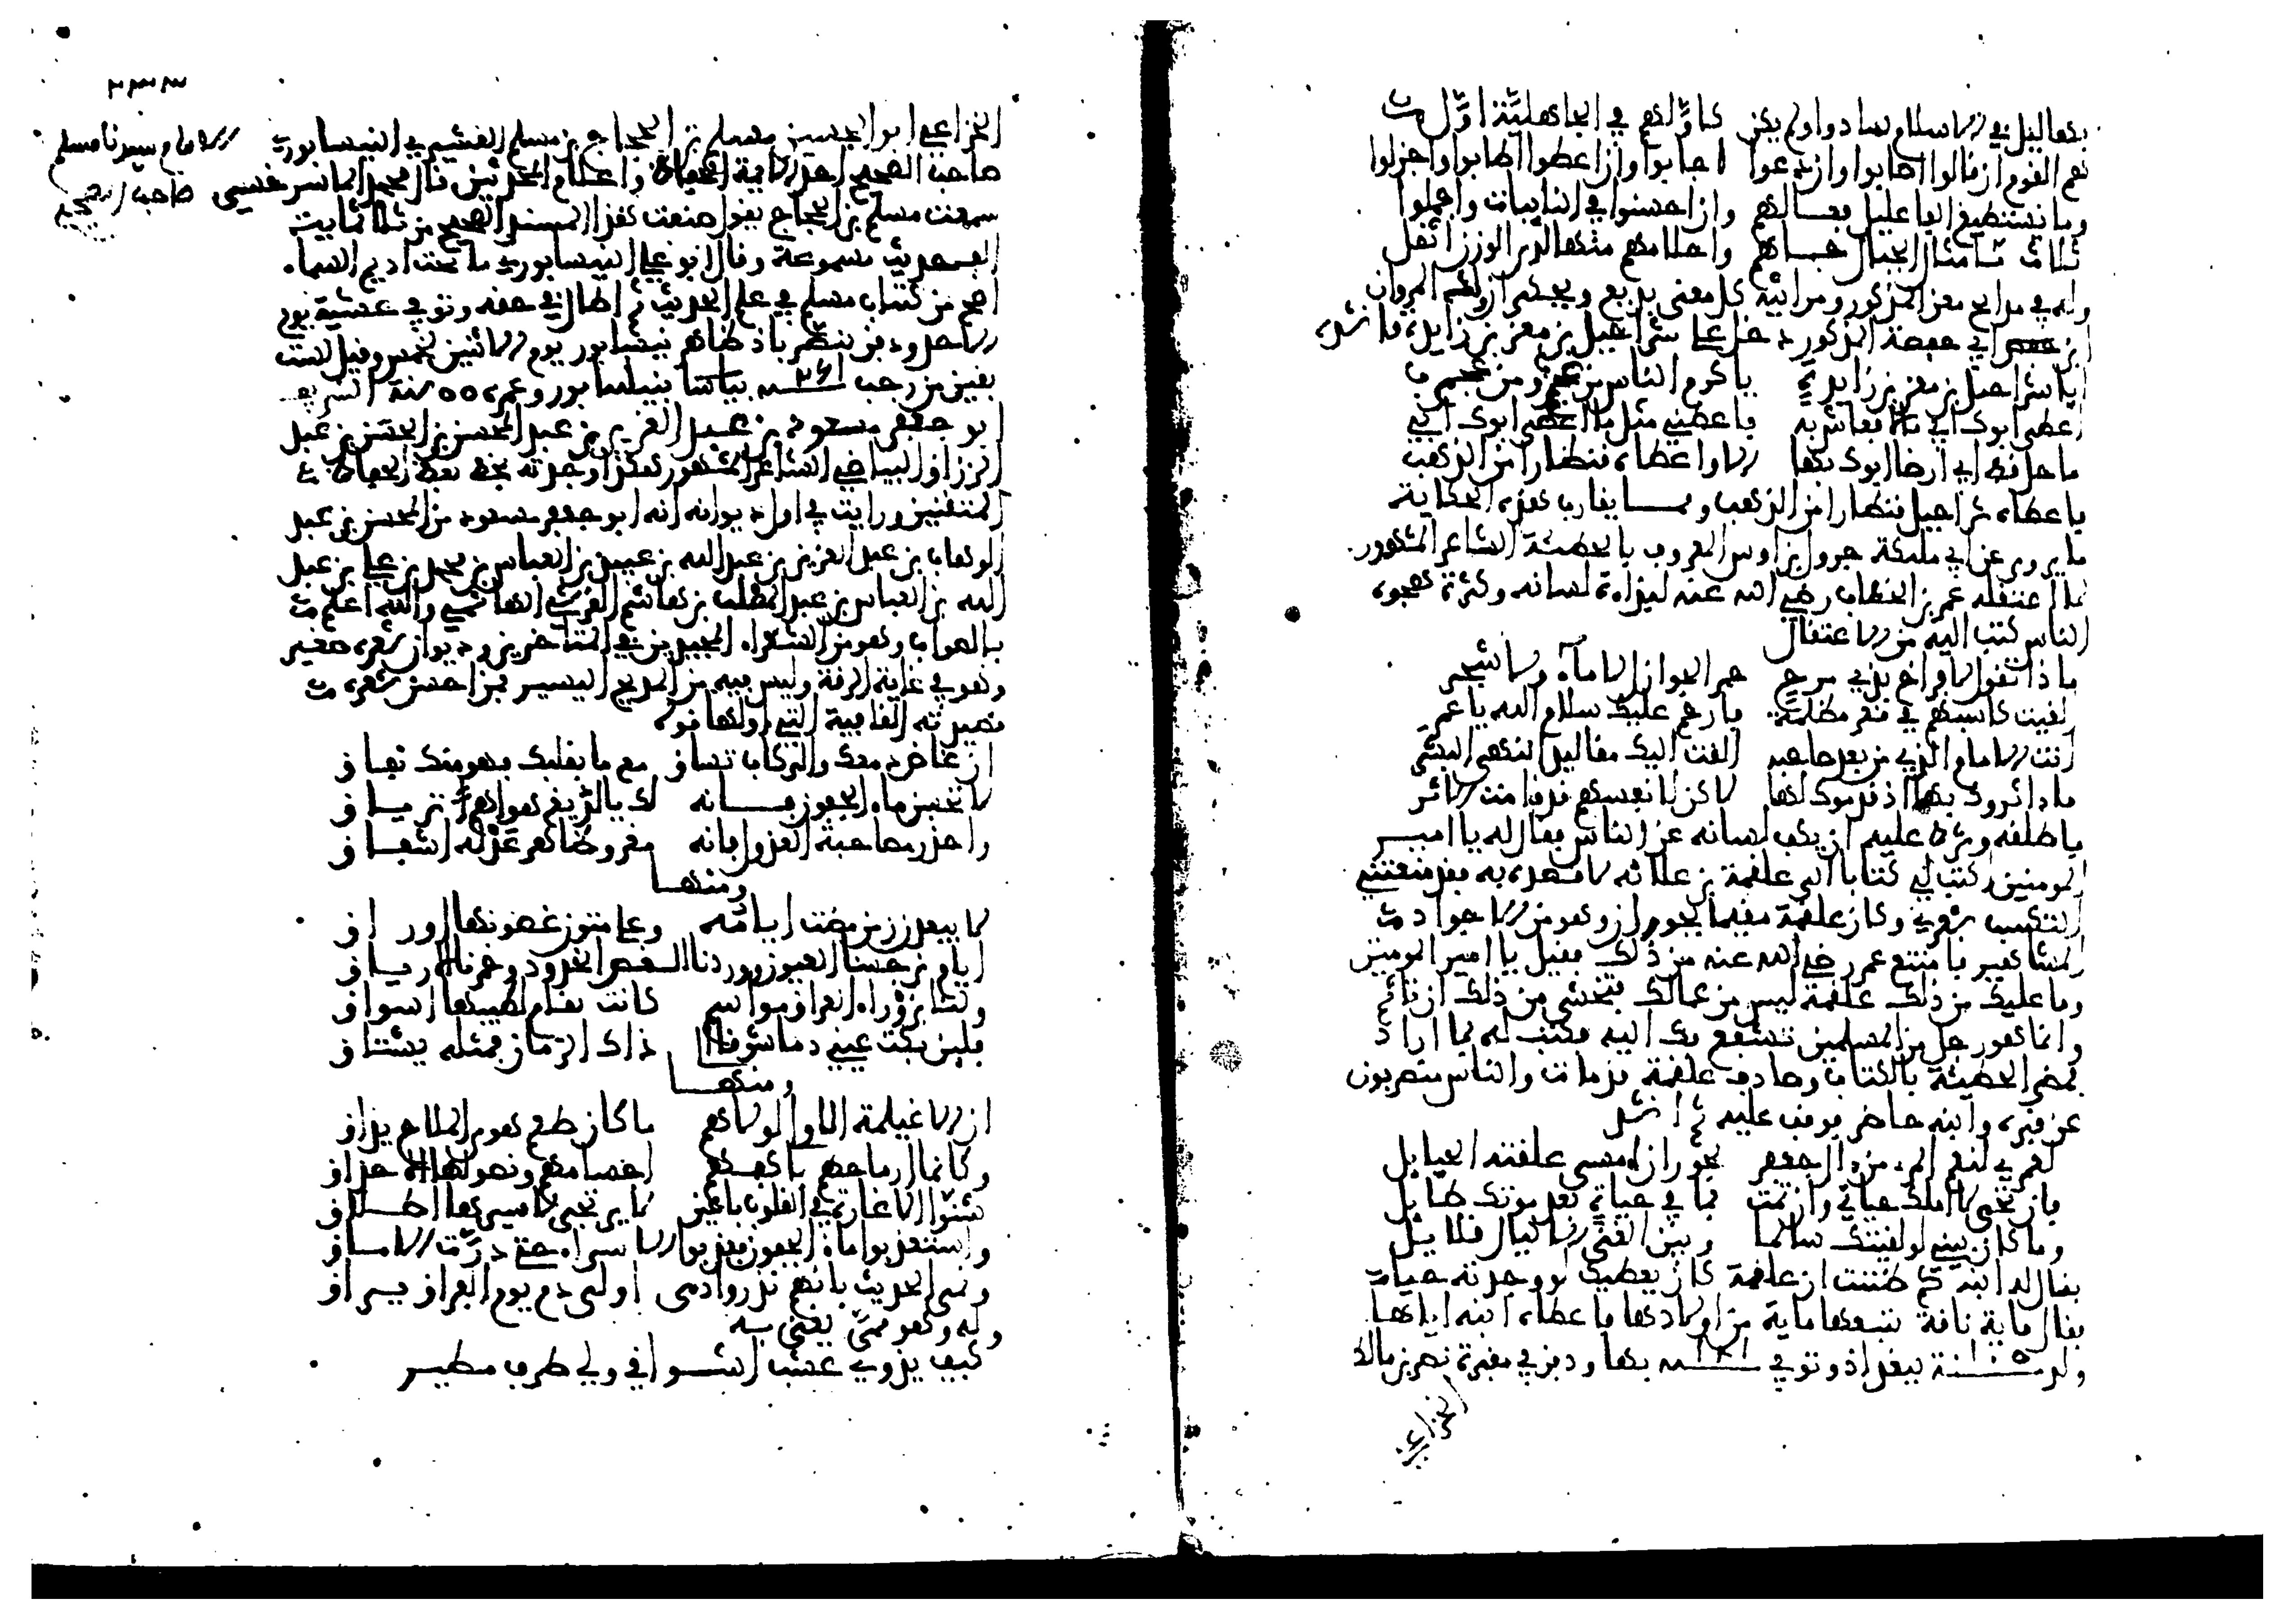 بهاليل في الاسلام سادوا ولم يكن كأولهم في الجاهلية أول
هم القوم ان قالوا اصابوا وان دعوا اجابوا وان اعطوا اطابوا واجزلوا
وما يستطيع الفاعلون فعالهم وان احسنوا في النايبات واجملوا
ثلاث بامثال الجبال حباهم واحلامهم منها لدى الوزن اثقل
وله في مدايح معن المذكور ومراثيه كل معنى بديع ويحكى ان ولد المروان
بن ابي حفصة المذكور دخل على شراحيل بن معن بن زايدة فانشده
ايا شراحيل بن معن بن زايدة يا اكرم الناس من عجم ومن عرب
اعطى ابوك ابي مالا فعاش به فاعطني مثل ما اعطى ابوك ابي
ما حل قط ابي ارضا ابوك بها الا واعطاه قنطارا من الذهب
فاعطاه شراحيل قنطارا من الذهب ومما يقارب هذه الحكاية
ما يروى عن ابي مليكة جرول بن اوس المعروف بالحطيئة الشاعر المشهور
لما اعتقله عمر بن الخطاب رضي الله عنه لبذاءة لسانه وكثرة هجوه
الناس كتب اليه من الاعتقال
ماذا تقول لافراخ بذي مرخ حمر الحواصل لا ماء ولا شجر
القيت كاسبهم في قعر مظلمة فارحم عليك سلام الله يا عمر
انت الامام الذي من بعد صاحبه القت اليك مقاليد النهى البشر
ما اثروك بها اذ قدموك لها لاكن لانفسهم قد كانت الاثر
فاطلقه وشرط عليه ان يكف لسانه عن الناس فقال له يا امير
المومنين اكتب لي كتابا الى علقمة بن علاثة لاقصده به فقد منعتني
التكسب بشعري وكان علقمة مقيما بحوران وهو من الاجواد
المشاهير فامتنع عمر رضي الله عنه من ذلك فقيل يا امير المومنين
وما عليك من ذلك علقمة ليس من عمالك فتخشى من ذلك ان تاثم
وانما هو رجل من المسلمين تشفع بك اليه فكتب له بما اراد
فمضى الحطيئة بالكتاب وصادف علقمة قد مات والناس منصرفون
عن قبره وابنه حاضر فوقف عليه ثم انشد
لعمري لنعم المرء من ال جعفر بحوران امسى علقته الحبايل
فان تحي لا املل حياتي وان تمت فما في حياة بعد موتك طايل
وما كان بيني لو لقيتك سالما وبين الغنى الا ليال قلايل
فقال له ابنه كم ظننت ان علقمة كان يعطيك لو وجدته حيا
فقال ماية ناقة يتبعها ماية من اولادها فاعطاه ابنه اياها
ولد سنة ١٠٥ ببغداذ وتوفي سنة ١٨١ بها ودفن في مقبرة نصر بن مالك
الخزاعي
٢٣٣
الخزاعي ابو الحسين مسلم بن الحجاج بن مسلم القشيري النيسابوري
الامام سيدنا مسلم
صاحب الصحيح
صاحب الصحيح احد الايمة الحفاظ واعلام المحدثين قال محمد الماسرخسي
سمعت مسلم بن الحجاج يقول صنعت هذا المسند الصحيح من ثلاثماية
الف حديث مسموعة وقال ابو علي النيسابوري ما تحت اديم السماء
اصح من كتاب مسلم في علم الحديث ثم اطال في حقه وتوفي عشية يوم
الاحد ودفن بنصر باذ ظاهر نيسابور يوم الاثنين لخمس وقيل لست
بقين من رجب سنة ٢٦١ بنيسابور وعمره ٥٥ سنة الشريف
ابو جعفر مسعود بن عبد العزيز بن عبد المحسن بن الحسن بن عبد
الرزاق البياضي الشاعر المشهور هكذا وجدته بخط بعض الحفاظ
المتقنين ورايت في اول ديوانه انه ابو جعفر مسعود بن المحسن بن عبد
الوهاب بن عبد العزيز بن عبد الله بن عبيد بن العباس بن محمد بن علي بن عبد
الله بن العباس بن عبد المطلب بن هاشم القرشي الهاشمي والله اعلم
بالصواب وهو من الشعراء المجيدين في المتاخرين وديوان شعره صغير
وهو في غاية الرقة وليس فيه من المديح الا اليسير فمن احسن شعره
قصيدته القافية التي اولها قوله
ان غاض دمعك والركاب تساق مع ما بقلبك فهو منك نفاق
لا تحبسن ماء الجفون فانه لك يا لديغ هواهم ترياق
واحذر مصاحبة العذول فانه مغر وظاهر عذله اشفاق
ومنها
لا يبعدن زمن مضت ايامه وعلى متون غصونها اوراق
ايام نرجسنا العيون ووردنا الغض الخدود وخمرنا الارياق
ولنا بزوراء العراق مواسم كانت تقام لطيبها اسواق
فلئن بكت عيني دما شوقا الى ذاك الزمان فمثله يشتاق
ومنها
اين الاغيلمة الاولى لولاهم ما كان طعم هوى الملاح يذاق
وكانما ارماحهم باكفهم اجسامهم ونصولها الاحداق
شنوا الاغارة في القلوب باعين لا يرتجى لاسيرها اطلاق
واستعذبوا ماء الجفون فعذبوا الاسراء حتى درت الاماق
ونمى الحديث بانهم نذروا دمي اولى دم يوم الفراق يراق
وله وهو مما يغنى به
كيف يذوي عشب اشواقي ولي طرف مطير